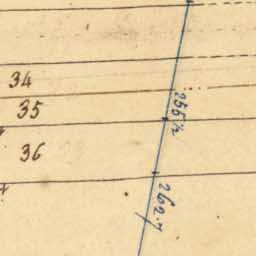 34
35
36
256½
262.7